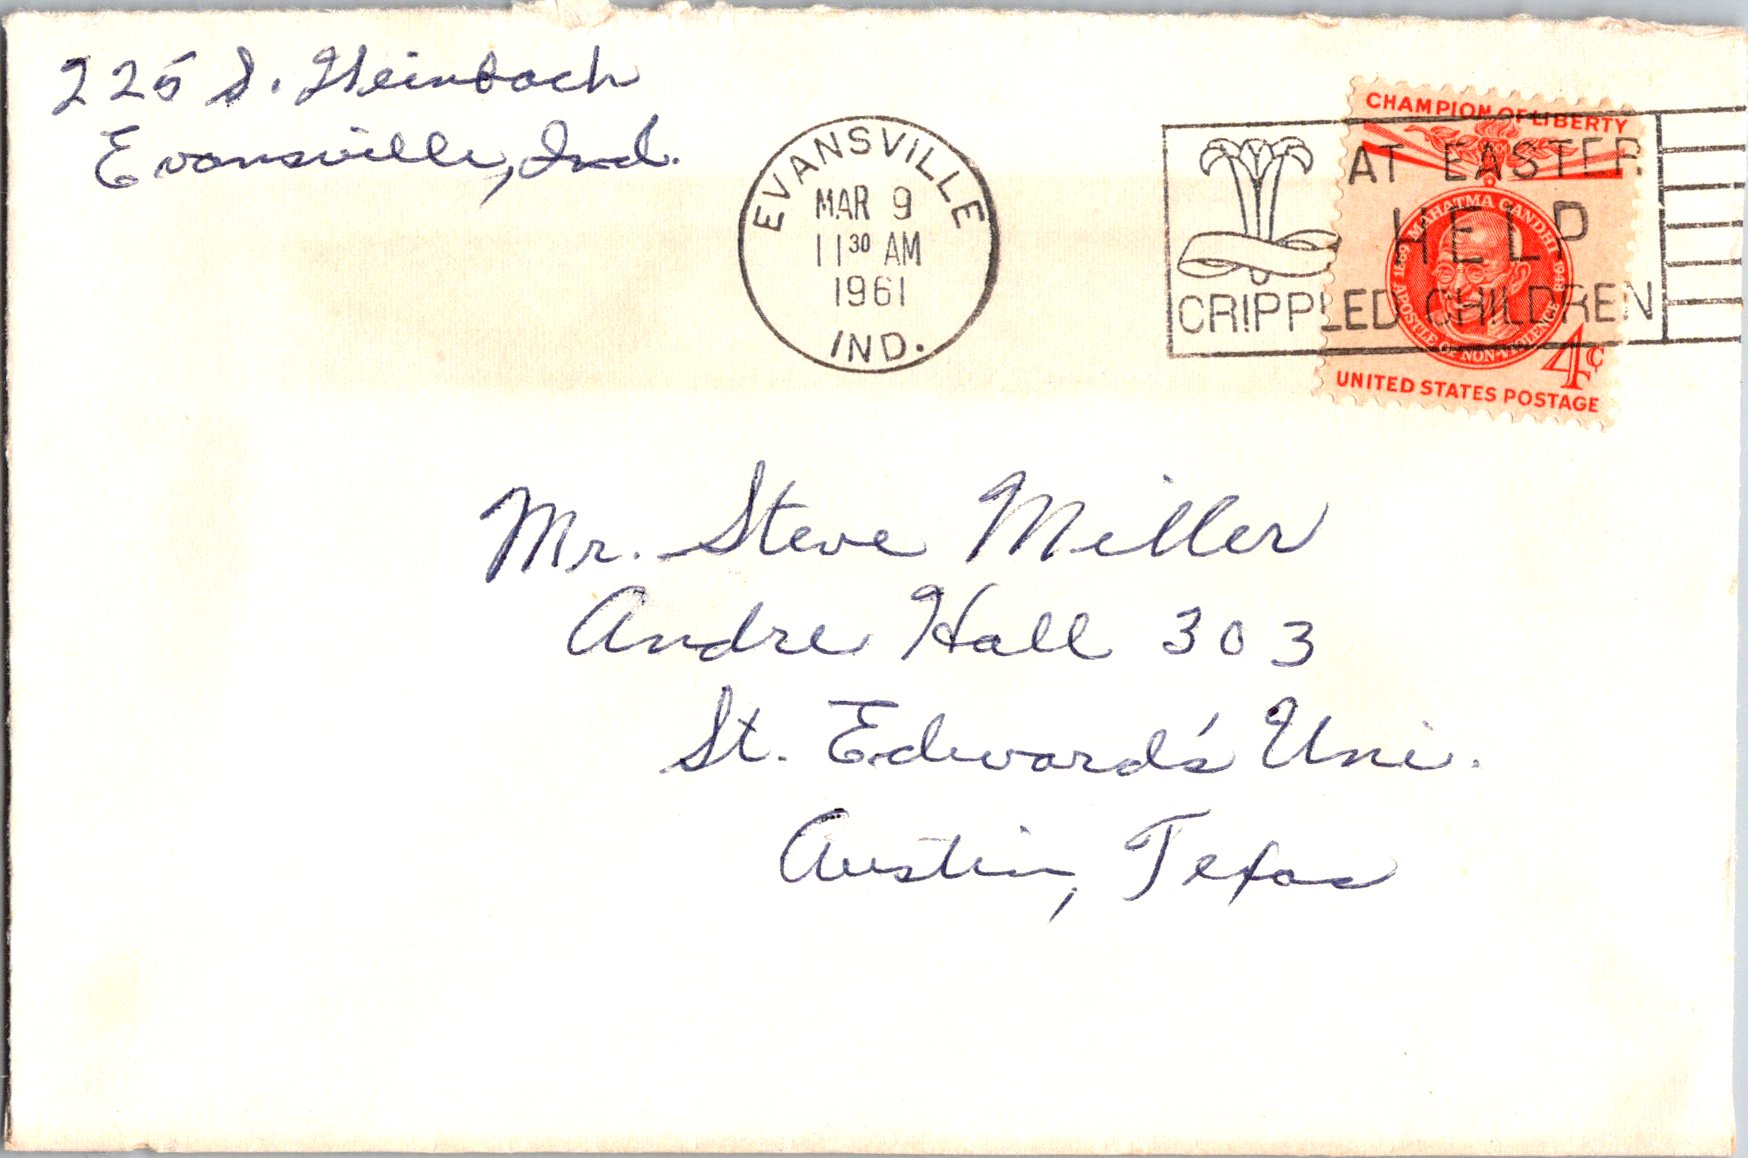 225 S. Weinbach
Evansville, Ind.
EVANSVILLE
MAR 9
11 30 AM
1961
IND.
AT EASTER
HELP
CRIPPLED CHILDREN
CHAMPION OF LIBERTY
MAHATMA GANDHI
1869 1948
APOSTLE OF NON-VIOLENCE
4¢
UNITED STATES POSTAGE
Mr. Steve Miller
Andre Hall 303
St. Edward's Uni.
Austin, Texas